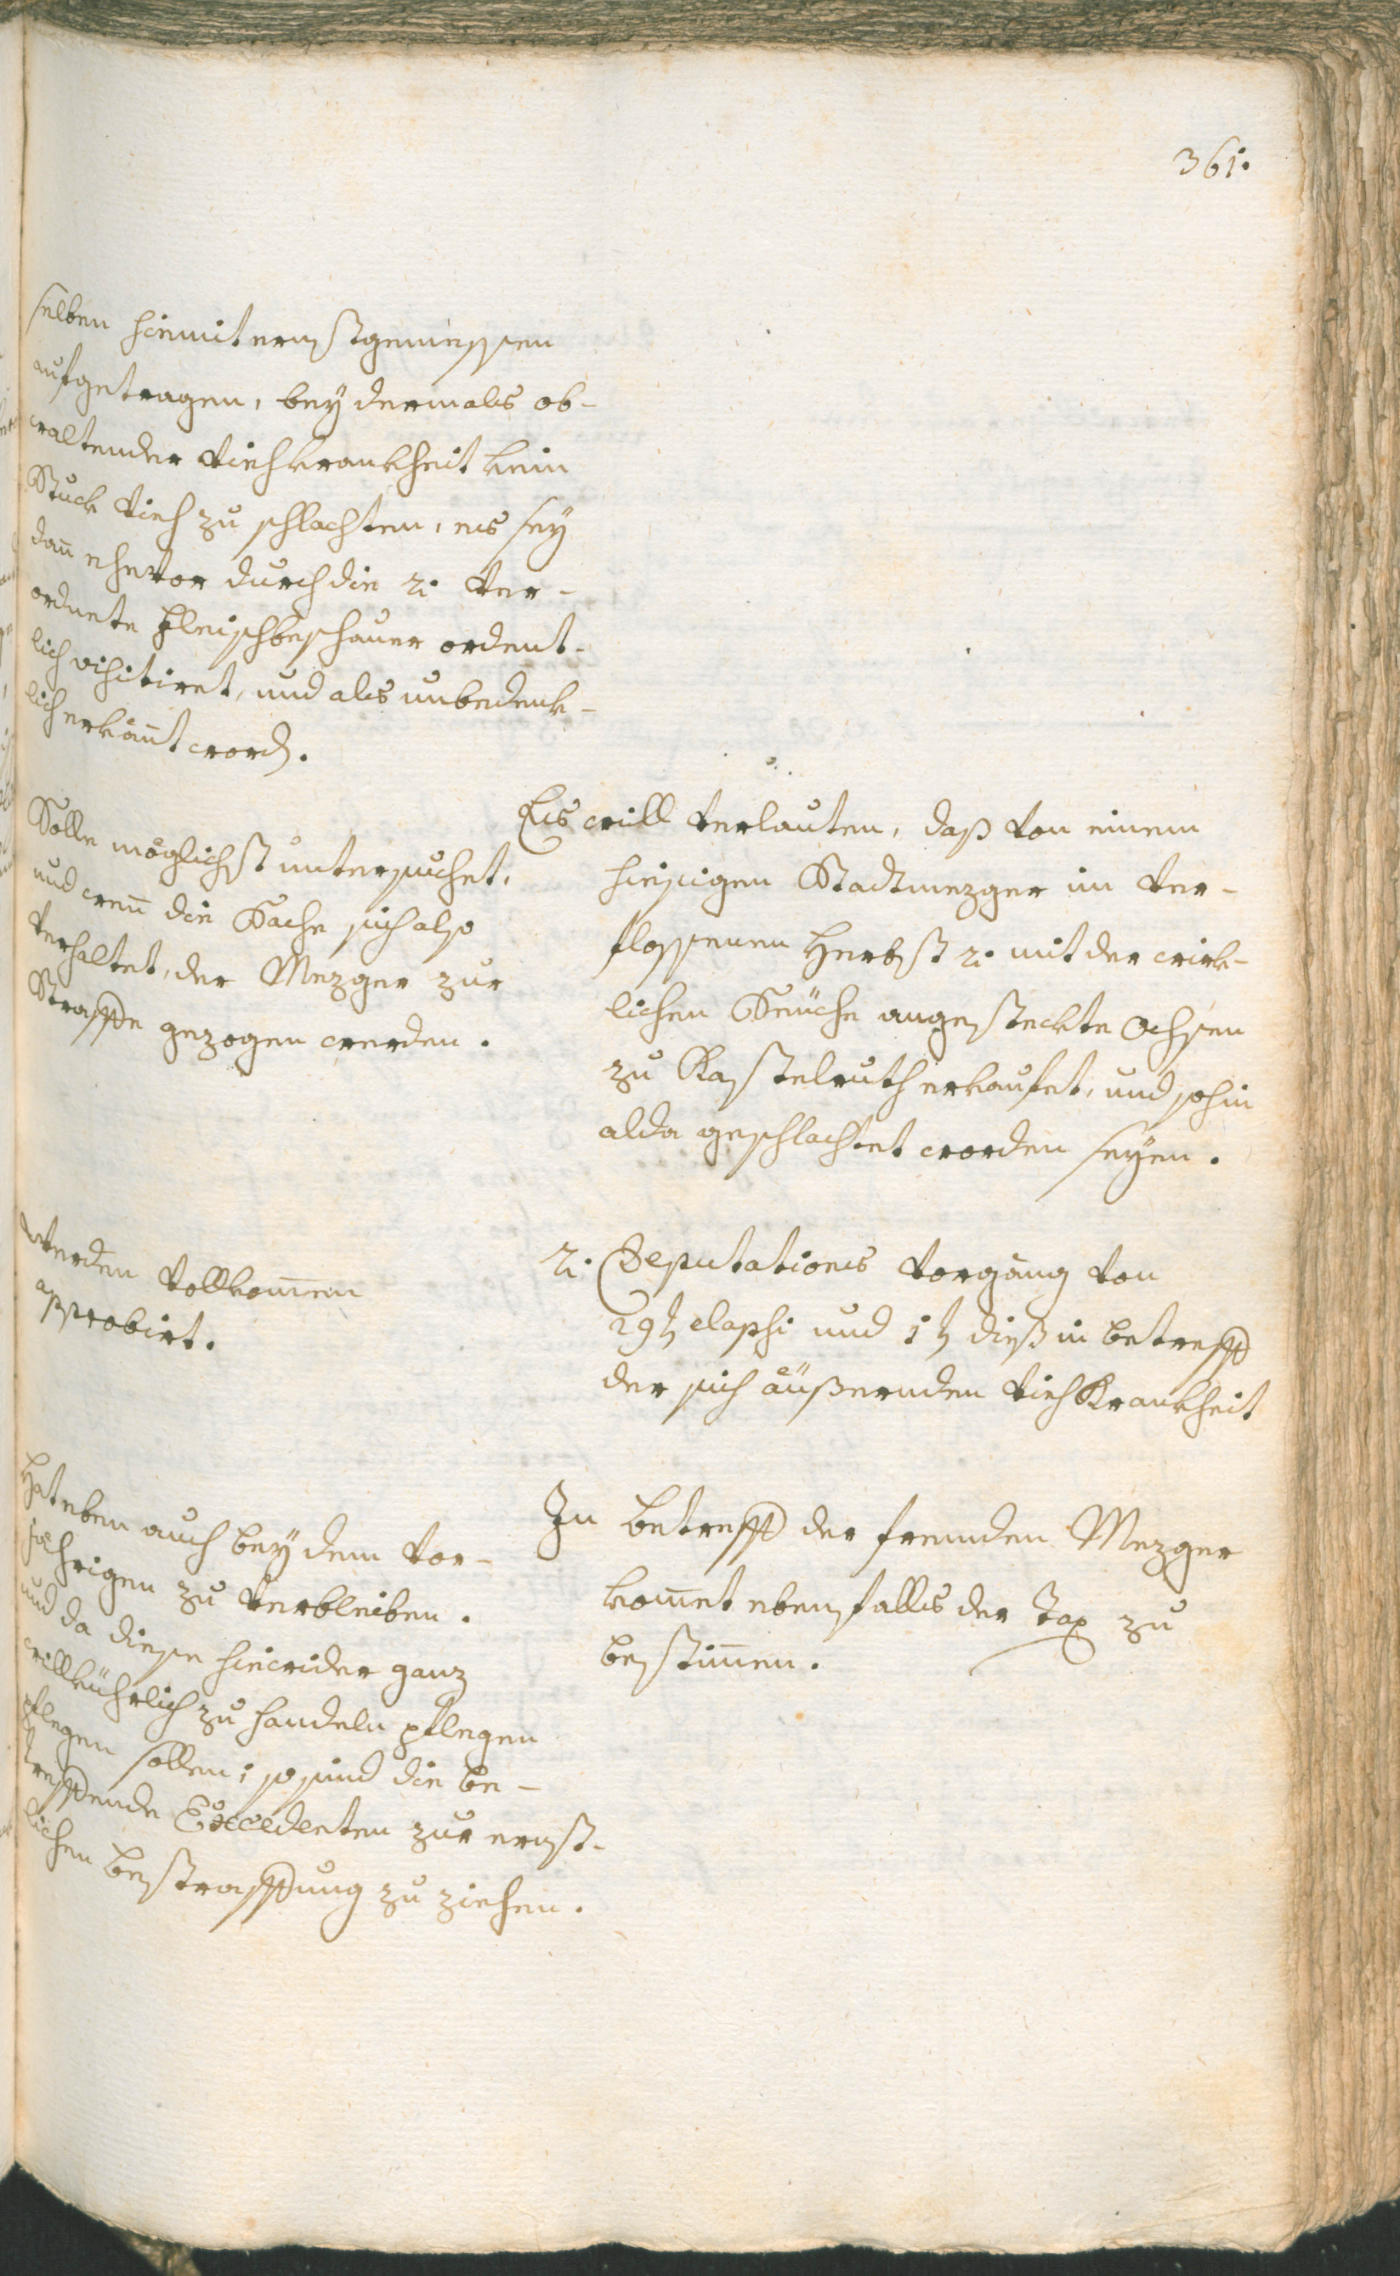 361.
selben hiemit ernstgemessen
aufgetragen, bey dermals ob-
waltender Viehkrankheit kein
Stuck Vieh zu schlachten, es sey
dan̄ ehevor durch die 2. Ver-
ordnete Fleischbeschauer ordent-
lich visitiret, und als unbedenk-
lich erkan̄t word.
Solle möglichst untersuchet,
und wen̄ die Sache sich also
Verhaltet, der Mezger zur
Straffe gezogen werden.
Es will Verlauten, daß Von einem
hiesigen Stadtmezger im Ver-
flossenen Herbst 2. mit der wirk-
lichen Seuche angesteckte Ochsen
zu Kastelruth erkaufet, und sohin
alda geschlachtet worden seyen.
Werden Vollkom̄en
approbirt.
2. Deputations Vorgäng Von
29t elapsi und 1t dieß in betreff
der sich äußernden Vieh Krankheit
Hat eben auch bey dem Vor-
jährigen zu Verbleiben.
und da diese hiewider ganz
willkührlich zu handeln pflegen
pflegen sollen; so sind die be-
treffende Excedenten zur ernst-
lichen bestraffung zu ziehen.
In betreff der fremden Mezger
kom̄et ebenfalls der Tax zu
bestim̄en.